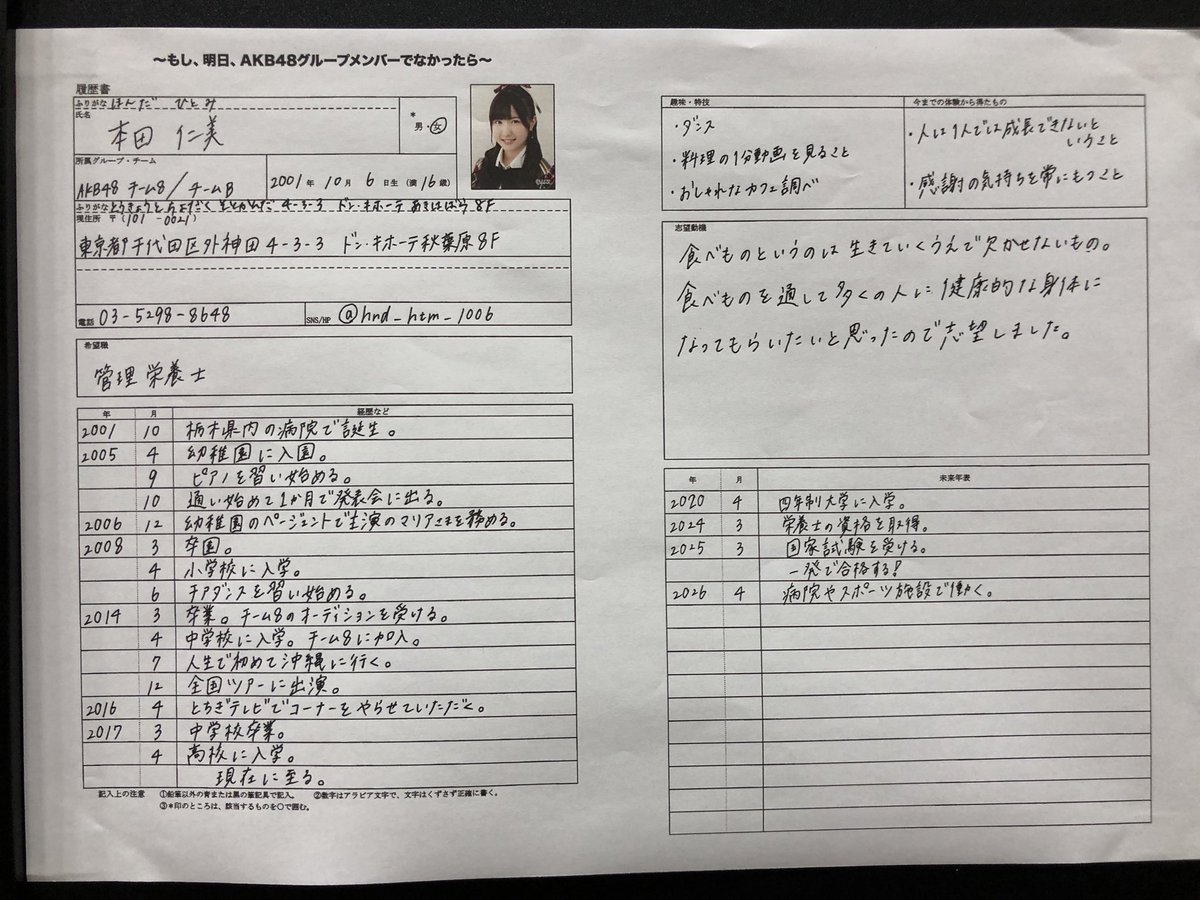 〜もし、明日、AKB48グループメンバーでなかったら〜
履歴書
ふりがな ほんだ ひとみ
氏名
本田 仁美
*
男・女
所属グループ・チーム
AKB48 チーム8/チームB
2001年 10月 6日生(満16歳)
ふりがな とうきょうと ちよだく そとかんだ 4-3-3 ドン・キホーテ あきはばら 8F
現住所 〒(101-0021)
東京都千代田区外神田4-3-3 ドン・キホーテ秋葉原8F
電話 03-5298-8648
SNS/HP @hnd_htm_1006
希望職
管理栄養士
年 月 経歴など
2001 10 栃木県内の病院で誕生。
2005 4 幼稚園に入園。
9 ピアノを習い始める。
10 通い始めて1か月で発表会に出る。
2006 12 幼稚園のページェントで主演のマリアさまを務める。
2008 3 卒園。
4 小学校に入学。
6 チアダンスを習い始める。
2014 3 卒業。チーム8のオーディションを受ける。
4 中学校に入学。チーム8に加入。
7 人生で初めて沖縄に行く。
12 全国ツアーに出演。
2016 4 とちぎテレビでコーナーをやらせていただく。
2017 3 中学校卒業。
4 高校に入学。
現在に至る。
記入上の注意 ①鉛筆以外の青または黒の筆記具で記入。 ②数字はアラビア文字で、文字はくずさず正確に書く。
③*印のところは、該当するものを○で囲む。
趣味・特技
・ダンス
・料理の1分動画を見ること
・おしゃれなカフェ調べ
今までの体験から得たもの
・人は1人では成長できないと
いうこと
・感謝の気持ちを常にもつこと
志望動機
食べものというのは生きていくうえで欠かせないもの。
食べものを通して多くの人に健康的な身体に
なってもらいたいと思ったので志望しました。
年 月 未来年表
2020 4 四年制大学に入学。
2024 3 栄養士の資格を取得。
2025 3 国家試験を受ける。
一発で合格する!
2026 4 病院やスポーツ施設で働く。